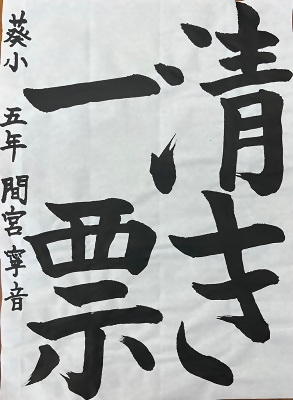 清き
一票
葵小 五年 間宮寧音